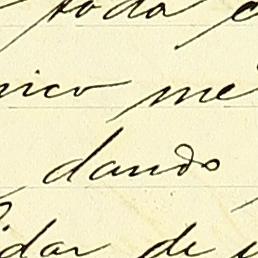 toda
nico me
dando
idar de